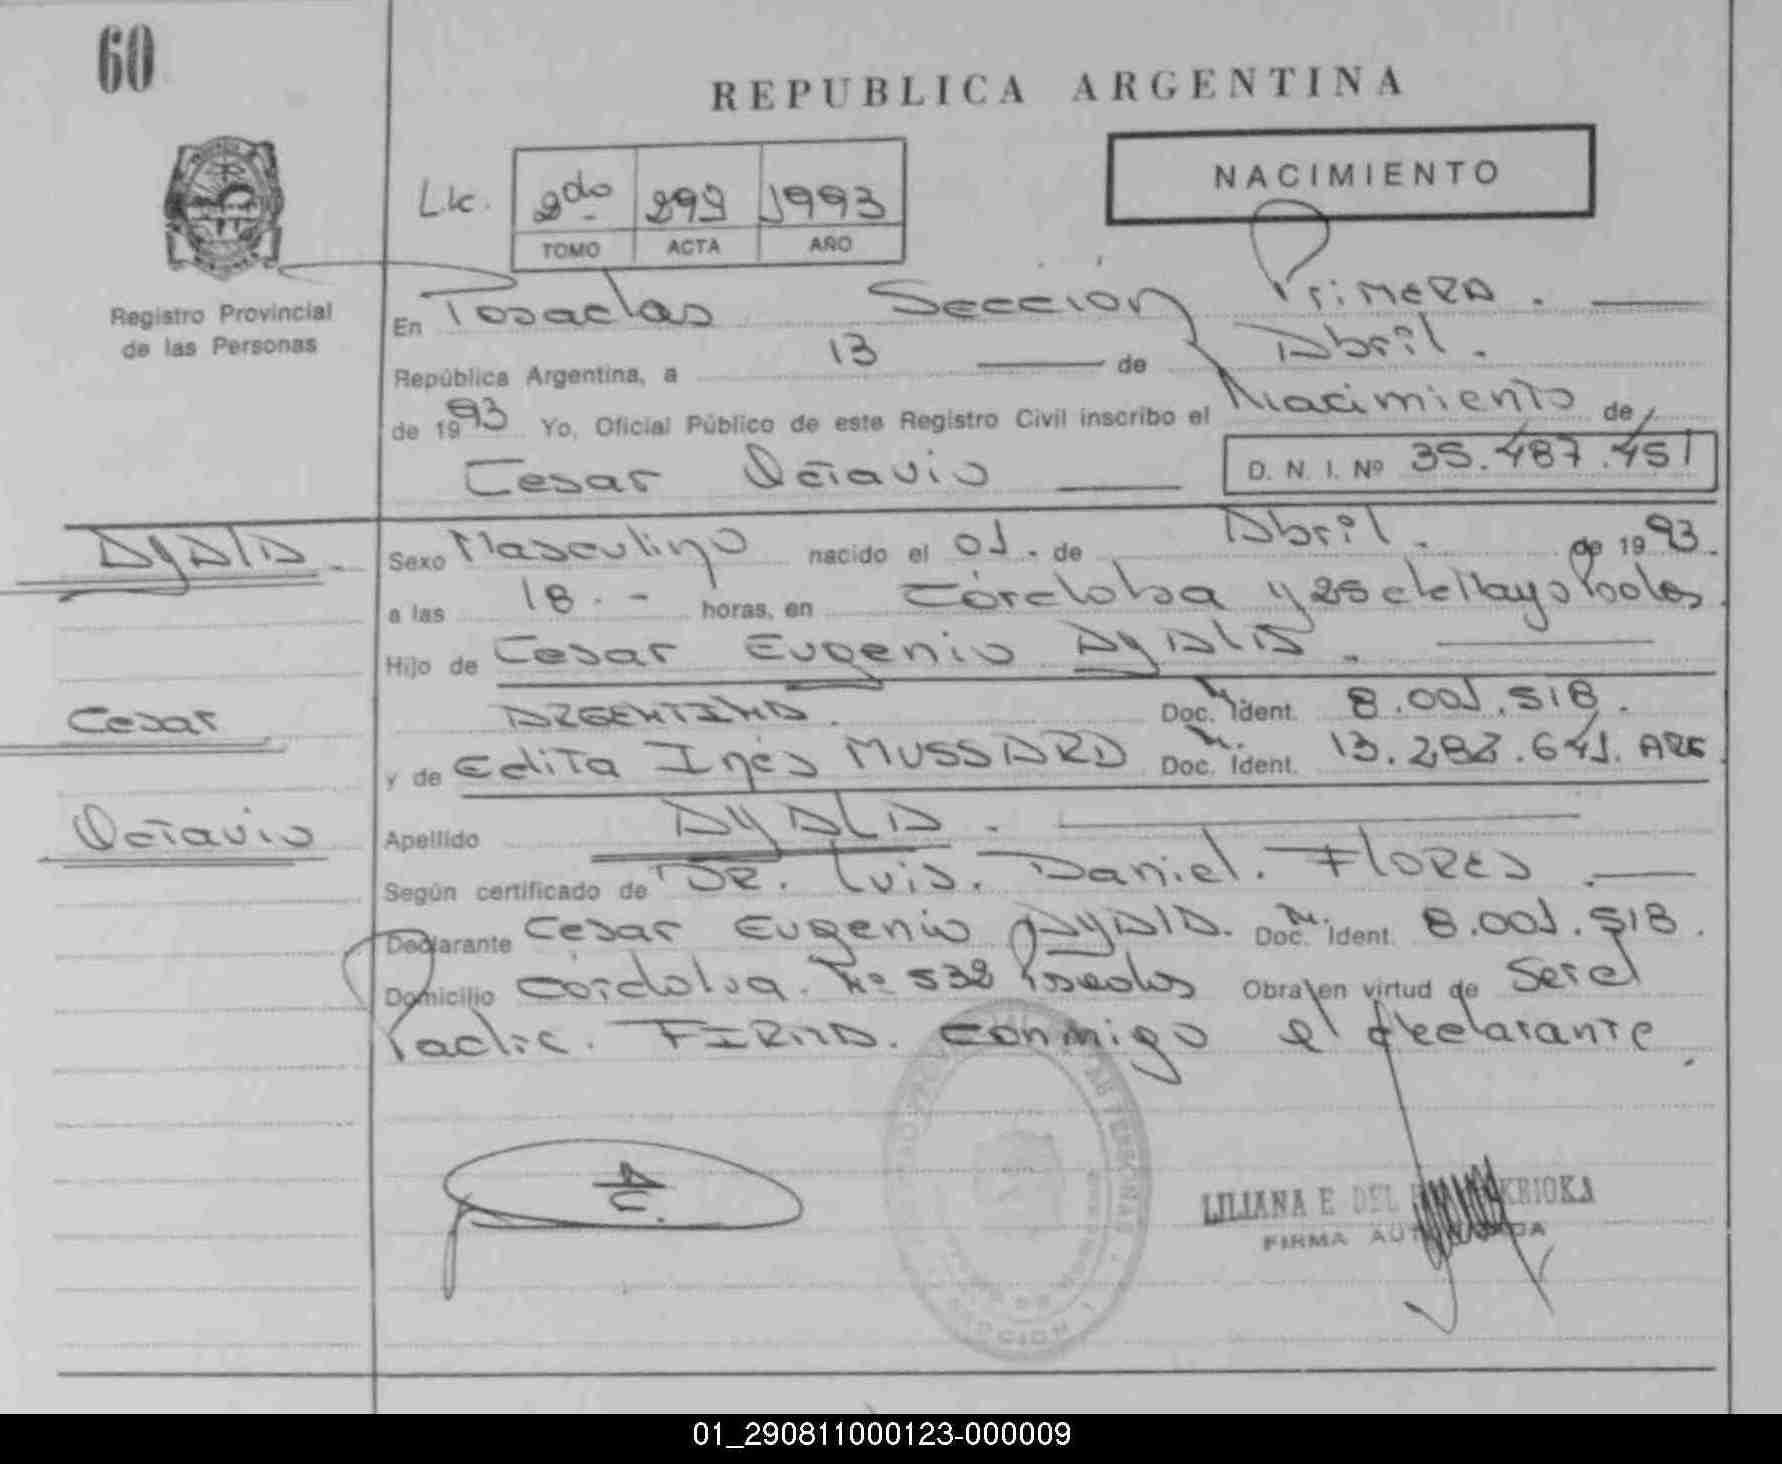 60
REPUBLICA ARGENTINA
NACIMIENTO
Lic. 2do 299 1993
TOMO ACTA AÑO
Registro Provincial
de las Personas
En Posadas Sección Primera.
República Argentina, a 13 de Abril.
de 1993 Yo, Oficial Público de este Registro Civil inscribo el Nacimiento de
Cesar Octavio D. N. I. Nº 35.487.451
AyAlA. Sexo Masculino nacido el 01. de Abril. de 1993.
a las 18.- horas, en Córdoba y 25 de Mayo Pdas
Hijo de Cesar Eugenio AyAlA.
Cesar ARGENTINA. Doc. M. Ident. 8.001.518.
y de Edita Inés MUSSARD Doc. M. Ident. 13.282.641. ARG
Octavio Apellido AyALA.
Según certificado de DR. Luis. Daniel. FLORES.
Declarante Cesar Eugenio AyAlA. Doc. M. Ident. 8.001.518.
Domicilio Córdoba. Nº 532 Posadas Obra en virtud de Ser el
Padre. FIRMA. Conmigo el declarante.
LILIANA E. DEL KRIOKA
FIRMA AUTORIZADA
01_290811000123-000009